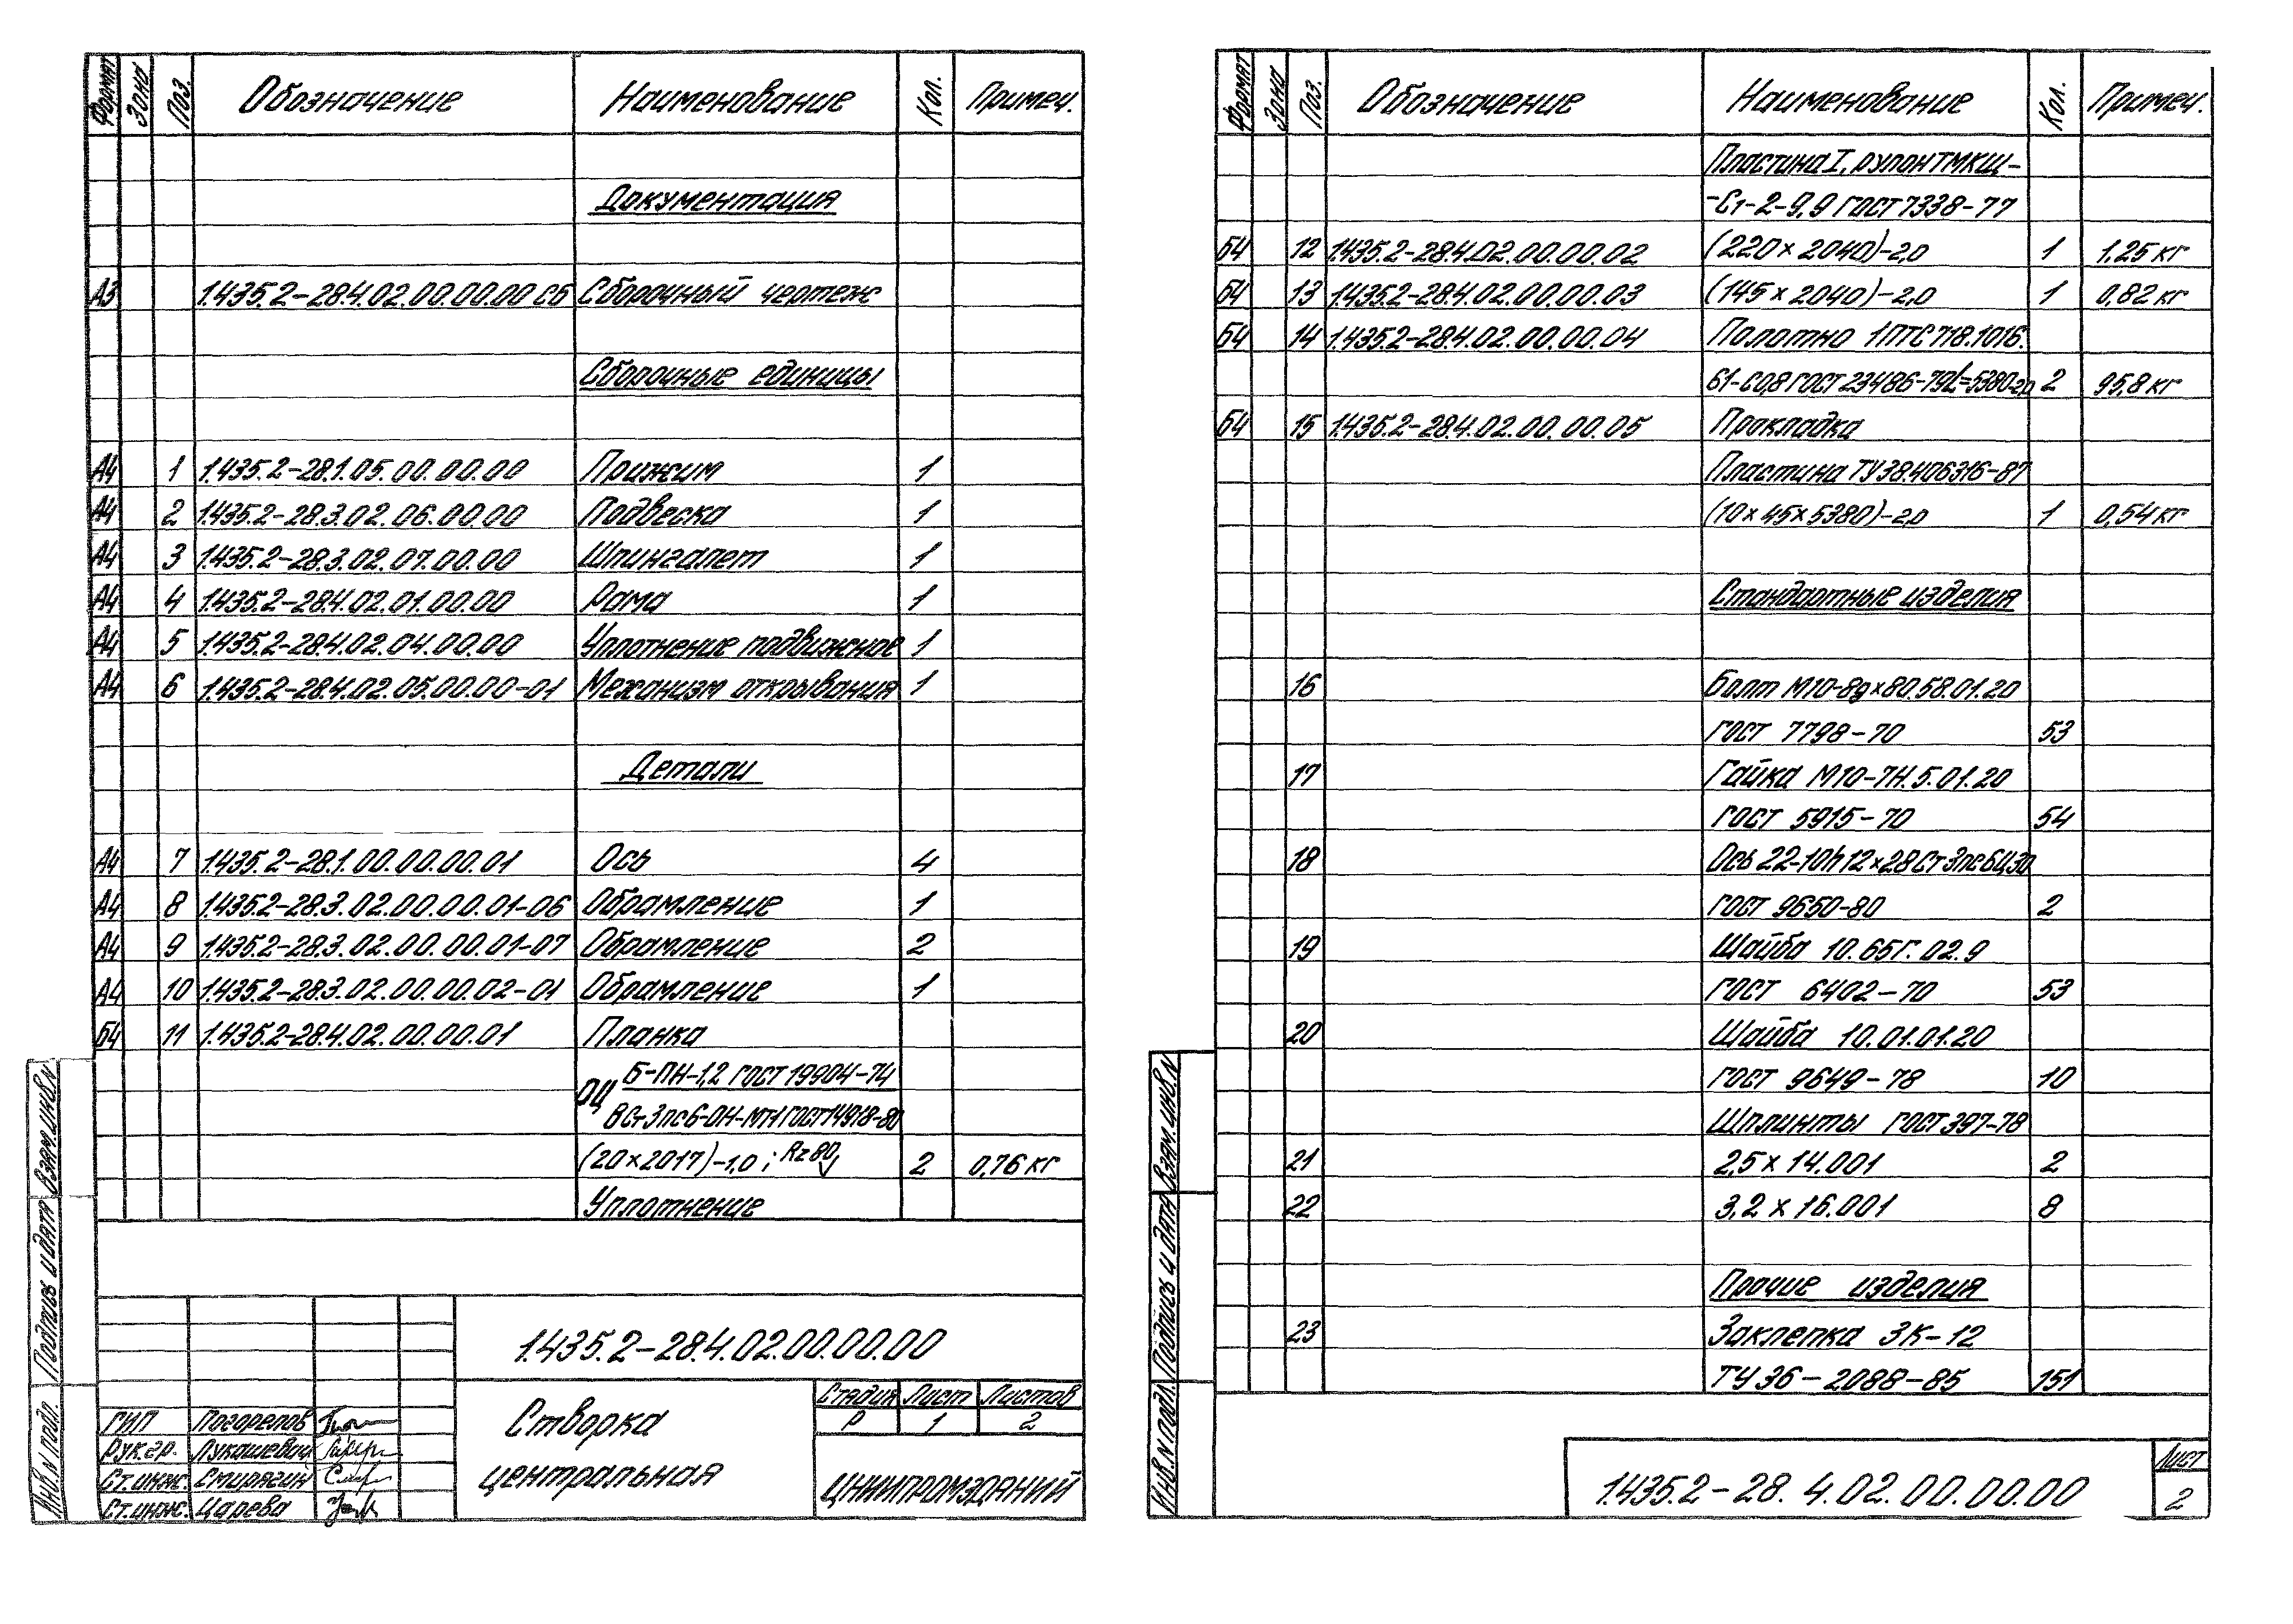 Формат Зона Поз. Обозначение Наименование Кол. Примеч.
Документация
А3 1.435.2-28.4.02.00.00.00 СБ Сборочный чертеж
Сборочные единицы
А4 1 1.435.2-28.1.05.00.00.00 Прижим 1
А4 2 1.435.2-28.3.02.06.00.00 Подвеска 1
А4 3 1.435.2-28.3.02.07.00.00 Шпингалет 1
А4 4 1.435.2-28.4.02.01.00.00 Рама 1
А4 5 1.435.2-28.4.02.04.00.00 Уплотнение подвижное 1
А4 6 1.435.2-28.4.02.05.00.00-01 Механизм открывания 1
Детали
А4 7 1.435.2-28.1.00.00.00.01 Ось 4
А4 8 1.435.2-28.3.02.00.00.01-06 Обрамление 1
А4 9 1.435.2-28.3.02.00.00.01-07 Обрамление 2
А4 10 1.435.2-28.3.02.00.00.02-01 Обрамление 1
Б4 11 1.435.2-28.4.02.00.00.01 Планка
ОЦ Б-ПН-1,2 ГОСТ 19904-74
ВСт3пс6-ОН-МТ-1 ГОСТ 14918-80
(20×2017)-1,0; Rz80 2 0,76 кг
Уплотнение
Взам. инв. N
Подпись и дата
Инв. N подл.
1.435.2-28.4.02.00.00.00
Створка
центральная
Стадия Лист Листов
Р 1 2
ЦНИИПРОМЗДАНИЙ
ГИП Погорелов
Рук.гр. Лукашевой
Ст.инж. Смирягин
Ст.инж. Царева
Формат Зона Поз. Обозначение Наименование Кол. Примеч.
Пластина I, рулон ТМКЩ-
-С1-2-9,9 ГОСТ 7338-77
Б4 12 1.435.2-28.4.02.00.00.02 (220×2040)-2,0 1 1,25 кг
Б4 13 1.435.2-28.4.02.00.00.03 (145×2040)-2,0 1 0,82 кг
Б4 14 1.435.2-28.4.02.00.00.04 Полотно 1ПТС 718.1016.
61-С0,8 ГОСТ 23486-79 L=5380-2,0 2 95,8 кг
Б4 15 1.435.2-28.4.02.00.00.05 Прокладка
Пластина ТУ38.406316-87
(10×45×5380)-2,0 1 0,54 кг
Стандартные изделия
16 Болт М10-8g×80.58.01.20
ГОСТ 7798-70 53
17 Гайка М10-7Н.5.01.20
ГОСТ 5915-70 54
18 Ось 22-10h12×28 Ст3пс6Ц30
ГОСТ 9650-80 2
19 Шайба 10.65Г.02.9
ГОСТ 6402-70 53
20 Шайба 10.01.01.20
ГОСТ 9649-78 10
Шплинты ГОСТ 397-78
21 2,5×14.001 2
22 3,2×16.001 8
Прочие изделия
23 Заклепка ЗК-12
ТУ 36-2088-85 151
Взам. инв. N
Подпись и дата
Инв. N подл.
1.435.2-28.4.02.00.00.00
Лист
2